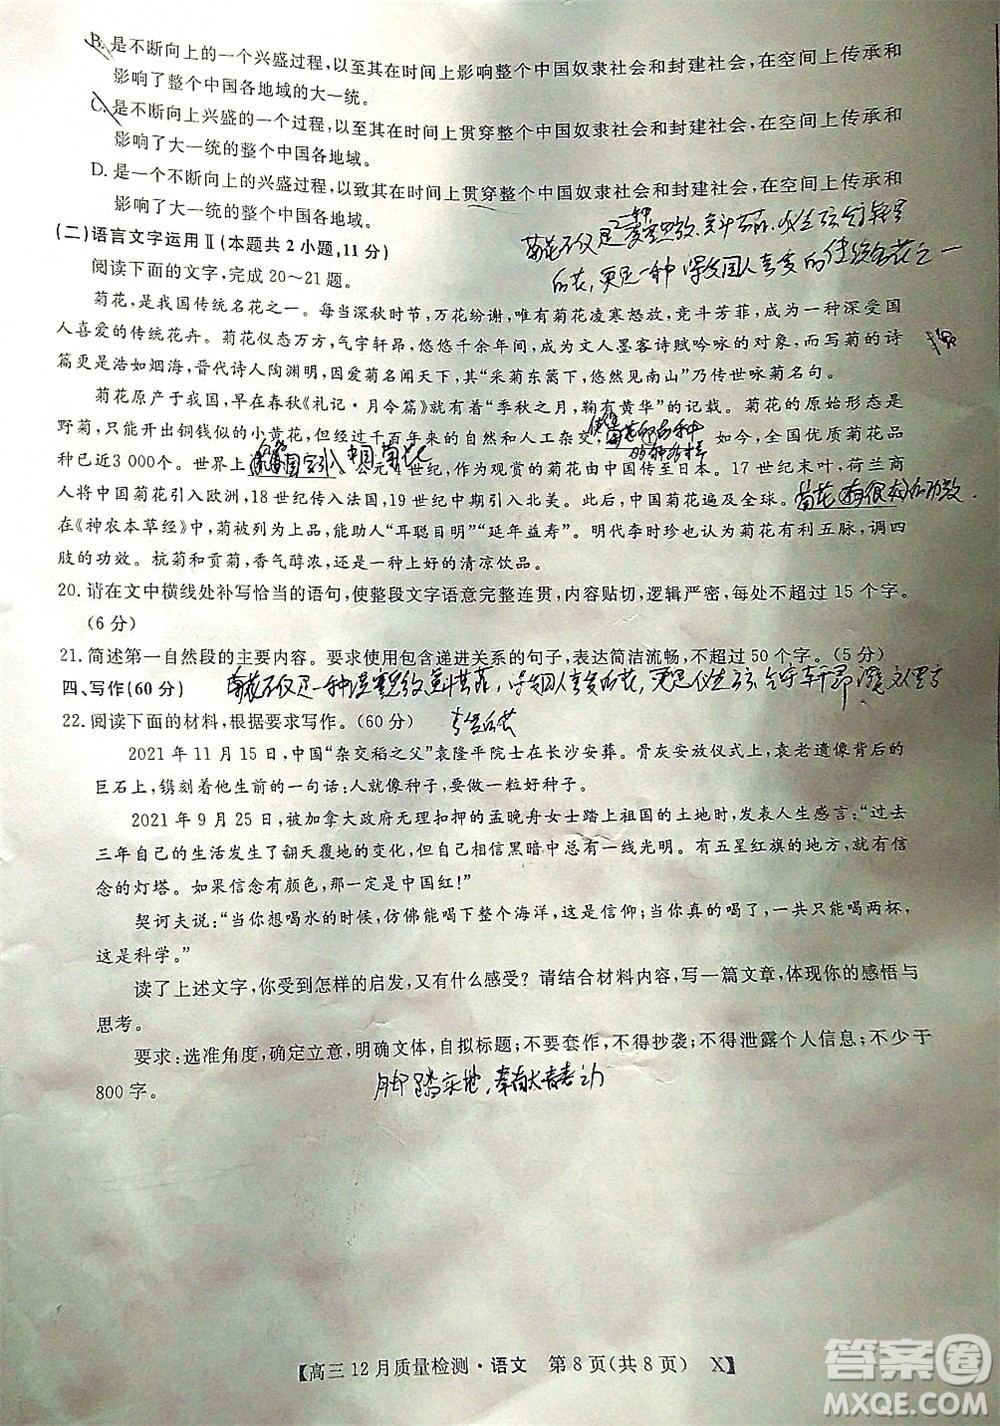 B. 是不断向上的一个兴盛过程,以至其在时间上影响整个中国奴隶社会和封建社会,在空间上传承和
影响了整个中国各地域的大一统。
C. 是不断向上兴盛的一个过程,以至其在时间上贯穿整个中国奴隶社会和封建社会,在空间上传承和
影响了大一统的整个中国各地域。
D. 是一个不断向上的兴盛过程,以致其在时间上贯穿整个中国奴隶社会和封建社会,在空间上传承和
影响了大一统的整个中国各地域。
(二)语言文字运用Ⅱ(本题共2小题,11分)
菊花不仅是一种
的花,更是一种深受国人喜爱的传统名花之一
阅读下面的文字,完成20~21题。
菊花,是我国传统名花之一。每当深秋时节,万花纷谢,唯有菊花凌寒怒放,竞斗芳菲,成为一种深受国
人喜爱的传统花卉。菊花仪态万方,气宇轩昂,悠悠千余年间,成为文人墨客诗赋吟咏的对象,而写菊的诗
篇更是浩如烟海,晋代诗人陶渊明,因爱菊名闻天下,其“采菊东篱下,悠然见南山”乃传世咏菊名句。
菊花原产于我国,早在春秋《礼记·月令篇》就有“季秋之月,鞠有黄华”的记载。菊花的原始形态是
野菊,只能开出铜钱似的小黄花,但经过千百年来的自然和人工杂交,
如今,全国优质菊花品
种已近3 000个。世界上
引入中国菊花
公元8世纪,作为观赏的菊花由中国传至日本。17世纪末叶,荷兰商
人将中国菊花引入欧洲,18世纪传入法国,19世纪中期引入北美。此后,中国菊花遍及全球。
菊花有很大的功效。
在《神农本草经》中,菊被列为上品,能助人“耳聪目明”“延年益寿”。明代李时珍也认为菊花有利五脉,调四
肢的功效。杭菊和贡菊,香气醇浓,已经是一种上好的清凉饮品。
20. 请在文中横线处补写恰当的语句,使整段文字语意完整连贯,内容贴切,逻辑严密,每处不超过15个字。
(6分)
21. 简述第一自然段的主要内容。要求使用包含递进关系的句子,表达简洁流畅,不超过50个字。(5分)
四、写作(60分)
菊花不仅是一种凌寒怒放,竞斗芳菲,深受国人喜爱的花,更是
22. 阅读下面的材料,根据要求写作。(60分)
2021年11月15日,中国“杂交稻之父”袁隆平院士在长沙安葬。骨灰安放仪式上,袁老遗像背后的
巨石上,镌刻着他生前的一句话:人就像种子,要做一粒好种子。
2021年9月25日,被加拿大政府无理扣押的孟晚舟女士踏上祖国的土地时,发表人生感言:“过去
三年自己的生活发生了翻天覆地的变化,但我始终相信黑暗中的一线光明。有五星红旗的地方,就有信
念的灯塔。如果信念有颜色,那一定是中国红!”
契诃夫说:“当你想喝水的时候,仿佛能喝下整个海洋,这是信仰;等到真的喝了,一共只能喝两杯,
这是科学。”
读了上述文字,你受到怎样的启发,又有什么感受?请结合材料内容,写一篇文章,体现你的感悟与
思考。
要求:选准角度,确定立意,明确文体,自拟标题;不要套作,不得抄袭;不得泄露个人信息;不少于
800字。
脚踏实地,奉献青春力
【高三12月质量检测·语文 第8页(共8页) X】
答案圈
MXQE.COM